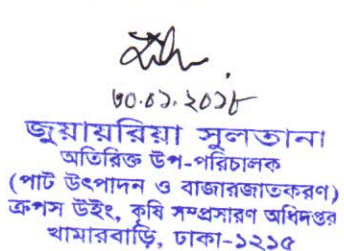 ৩০.০১.২০১৮
জুয়ায়রিয়া সুলতানা
অতিরিক্ত উপ-পরিচালক
(পাট উৎপাদন ও বাজারজাতকরণ)
ক্রপস উইং, কৃষি সম্প্রসারণ অধিদপ্তর
খামারবাড়ি, ঢাকা-১২১৫